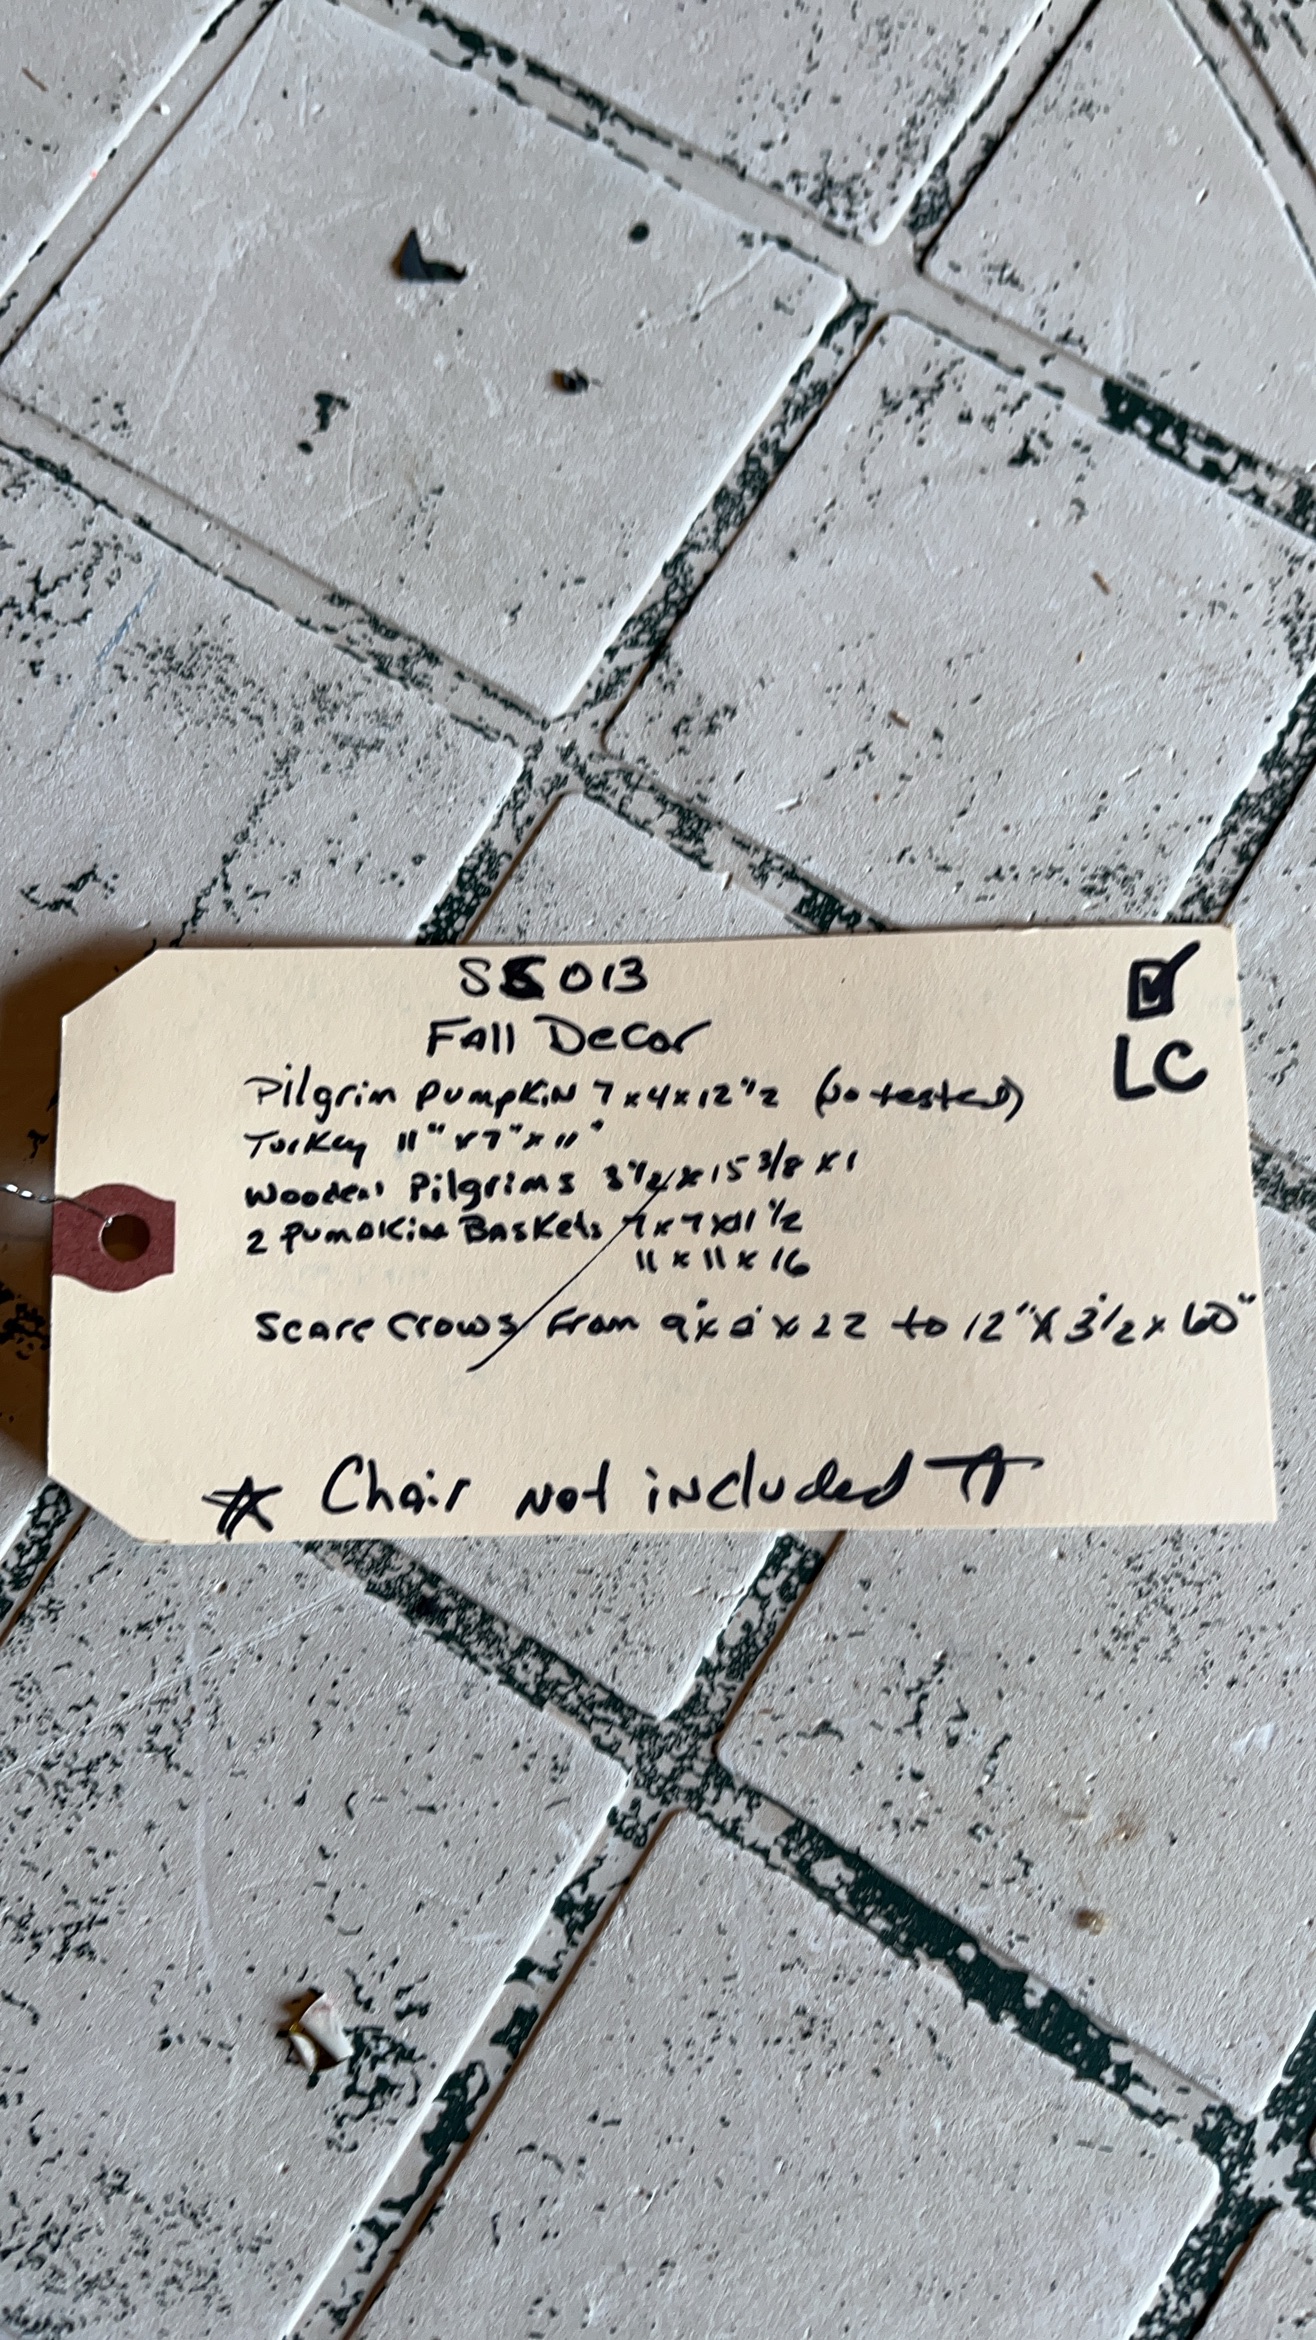 SS013
Fall Decor
Pilgrim Pumpkin 7x4x12 1/2 (no tested)
Turkey 11"x7"x11"
Wooden Pilgrims 3 1/2 x 15 3/8 x 1
2 Pumpkin Baskets 7x7x11 1/2
11 x 11 x 16
Scare Crows from 9" x x 22 to 12" x 3 1/2 x 60"
☆ Chair Not included ☆
☑
LC